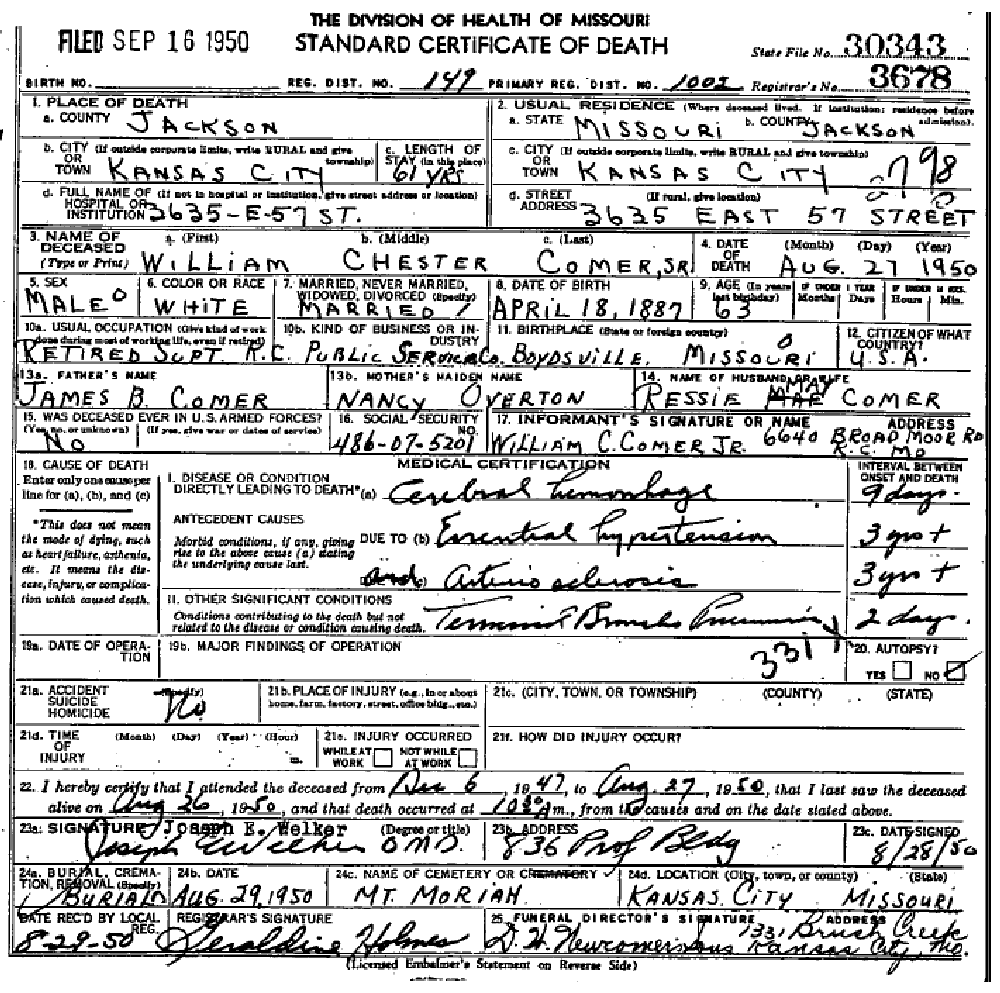 THE DIVISION OF HEALTH OF MISSOURI
FILED SEP 16 1950 STANDARD CERTIFICATE OF DEATH State File No. 30343
BIRTH NO. REG. DIST. NO. 149 PRIMARY REG. DIST. NO. 1002 Registrar's No. 3678
1. PLACE OF DEATH
a. COUNTY JACKSON
2. USUAL RESIDENCE (Where deceased lived. If institution: residence before admission).
a. STATE MISSOURI b. COUNTY JACKSON
b. CITY (If outside corporate limits, write RURAL and give township) OR TOWN KANSAS CITY
c. LENGTH OF STAY (in this place) 61 YRS
c. CITY (If outside corporate limits, write RURAL and give township) OR TOWN KANSAS CITY
d. FULL NAME OF (If not in hospital or institution, give street address or location) HOSPITAL OR INSTITUTION 3635-E-57 ST.
d. STREET ADDRESS (If rural, give location) 3635 EAST 57 STREET
3. NAME OF DECEASED (Type or Print) a. (First) b. (Middle) c. (Last)
WILLIAM CHESTER COMER, SR
4. DATE OF DEATH (Month) (Day) (Year) AUG. 27 1950
5. SEX MALE
6. COLOR OR RACE WHITE
7. MARRIED, NEVER MARRIED, WIDOWED, DIVORCED (Specify) MARRIED
8. DATE OF BIRTH APRIL 18, 1887
9. AGE (In years last birthday) 63 IF UNDER 1 YEAR Months Days IF UNDER 24 HRS. Hours Min.
10a. USUAL OCCUPATION (Give kind of work done during most of working life, even if retired) RETIRED SUPT.
10b. KIND OF BUSINESS OR INDUSTRY K.C. PUBLIC SERVICE CO.
11. BIRTHPLACE (State or foreign country) BOYDSVILLE, MISSOURI
12. CITIZEN OF WHAT COUNTRY? U.S.A.
13a. FATHER'S NAME JAMES B. COMER
13b. MOTHER'S MAIDEN NAME NANCY OVERTON
14. NAME OF HUSBAND OR WIFE RESSIE MAY COMER
15. WAS DECEASED EVER IN U.S. ARMED FORCES? (Yes, no, or unknown) (If yes, give war or dates of service) NO
16. SOCIAL SECURITY NO. 486-07-5201
17. INFORMANT'S SIGNATURE OR NAME ADDRESS
WILLIAM C. COMER JR. 6640 BROADMOOR RD K.C. MO
18. CAUSE OF DEATH
Enter only one cause per line for (a), (b), and (c)
*This does not mean the mode of dying, such as heart failure, asthenia, etc. It means the disease, injury, or complication which caused death.
MEDICAL CERTIFICATION
INTERVAL BETWEEN ONSET AND DEATH
I. DISEASE OR CONDITION DIRECTLY LEADING TO DEATH* (a) Cerebral hemorrhage 9 days.
ANTECEDENT CAUSES
Morbid conditions, if any, giving rise to the above cause (a) stating the underlying cause last.
DUE TO (b) Essential hypertension 3 yrs +
and (c) Arterio sclerosis 3 yrs +
II. OTHER SIGNIFICANT CONDITIONS
Conditions contributing to the death but not related to the disease or condition causing death. Terminal Broncho Pneumonia 2 days.
19a. DATE OF OPERATION
19b. MAJOR FINDINGS OF OPERATION
331X
20. AUTOPSY? YES NO
21a. ACCIDENT SUICIDE HOMICIDE (Specify) No
21b. PLACE OF INJURY (e.g., in or about home, farm, factory, street, office bldg., etc.)
21c. (CITY, TOWN, OR TOWNSHIP) (COUNTY) (STATE)
21d. TIME OF INJURY (Month) (Day) (Year) (Hour) m.
21e. INJURY OCCURRED WHILE AT WORK NOT WHILE AT WORK
21f. HOW DID INJURY OCCUR?
22. I hereby certify that I attended the deceased from Dec 6, 1947, to Aug. 27, 1950, that I last saw the deceased
alive on Aug 26, 1950, and that death occurred at m., from the causes and on the date stated above.
23a. SIGNATURE Joseph E. Welker (Degree or title)
Joseph E Welker M.D.
23b. ADDRESS 836 Prof Bldg
23c. DATE SIGNED 8/28/50
24a. BURIAL, CREMATION, REMOVAL (Specify) BURIAL
24b. DATE AUG. 29, 1950
24c. NAME OF CEMETERY OR CREMATORY MT. MORIAH
24d. LOCATION (City, town, or county) (State) KANSAS CITY MISSOURI
DATE REC'D BY LOCAL REG. 8-29-50
REGISTRAR'S SIGNATURE Geraldine Holmes
25. FUNERAL DIRECTOR'S SIGNATURE ADDRESS
D. W. Newcomer's Sons 1331 Brush Creek Kansas City, Mo.
(Licensed Embalmer's Statement on Reverse Side)